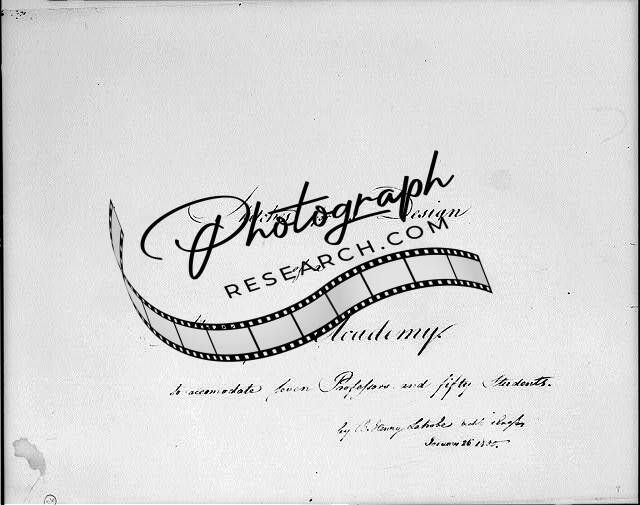 Design
Photograph
RESEARCH.COM
Academy.
to accomodate seven Professors and fifty Students.
by B. Henry Latrobe
January 26 1800.